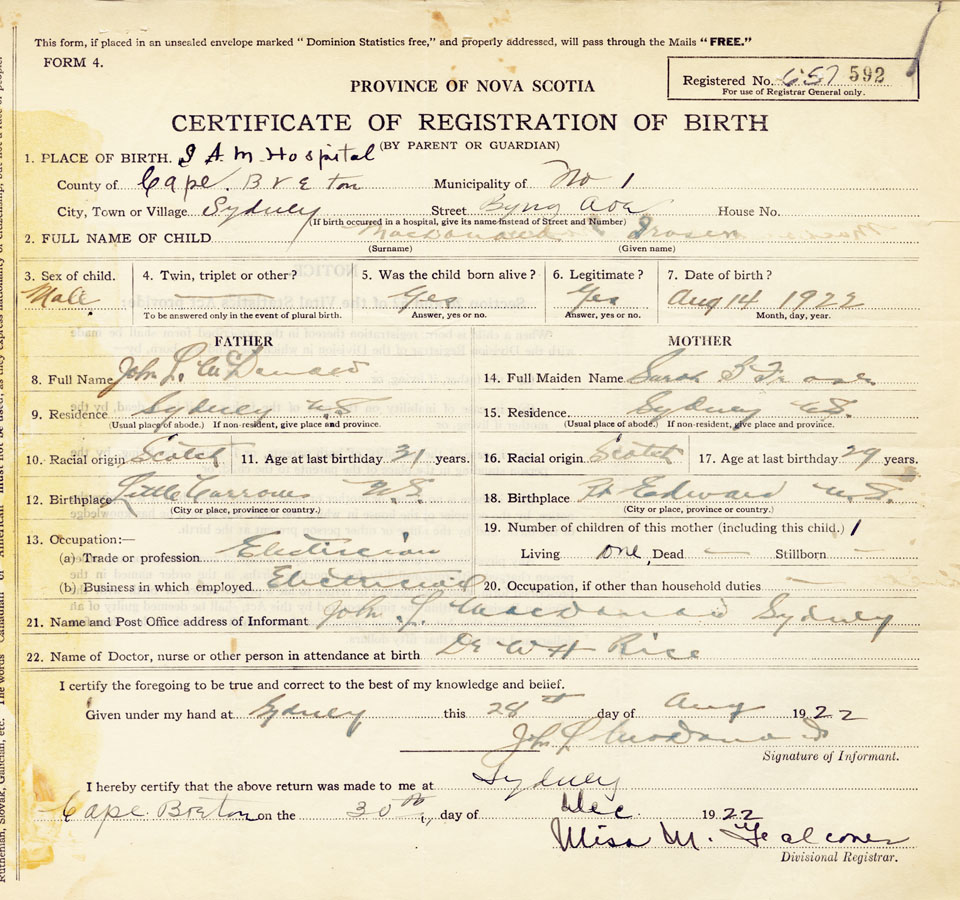 This form, if placed in an unsealed envelope marked "Dominion Statistics free," and properly addressed, will pass through the Mails "FREE."
FORM 4.
Registered No. 657 592
For use of Registrar General only.
PROVINCE OF NOVA SCOTIA
CERTIFICATE OF REGISTRATION OF BIRTH
(BY PARENT OR GUARDIAN)
1. PLACE OF BIRTH. S A M Hospital
County of Cape Breton Municipality of No 1
City, Town or Village Sydney Street Byng Ave House No.
(If birth occurred in a hospital, give its name instead of Street and Number)
2. FULL NAME OF CHILD Macdonald
(Surname) (Given name)
3. Sex of child. 4. Twin, triplet or other? 5. Was the child born alive? 6. Legitimate? 7. Date of birth?
Male Yes Yes Aug 14 1922
To be answered only in the event of plural birth. Answer, yes or no. Answer, yes or no. Month, day, year.
FATHER MOTHER
8. Full Name John L. McDonald 14. Full Maiden Name Sarah Fraser
9. Residence Sydney N.S. 15. Residence Sydney N.S.
(Usual place of abode.) If non-resident, give place and province. (Usual place of abode.) If non-resident, give place and province.
10. Racial origin Scotch 11. Age at last birthday 31 years. 16. Racial origin Scotch 17. Age at last birthday 29 years.
12. Birthplace Little Narrows N.S. 18. Birthplace Pt Edward N.S.
(City or place, province or country.) (City or place, province or country.)
19. Number of children of this mother (including this child.) 1
13. Occupation:—
(a) Trade or profession Electrician Living one, Dead — Stillborn —
(b) Business in which employed Electrical 20. Occupation, if other than household duties
21. Name and Post Office address of Informant John L. Macdonald Sydney
22. Name of Doctor, nurse or other person in attendance at birth Dr W H Rice
I certify the foregoing to be true and correct to the best of my knowledge and belief.
Given under my hand at Sydney this 28th day of Aug 1922
John L Macdonald
Signature of Informant.
I hereby certify that the above return was made to me at Sydney
Cape Breton on the 30th day of Dec. 1922
Miss M. Falconer
Divisional Registrar.